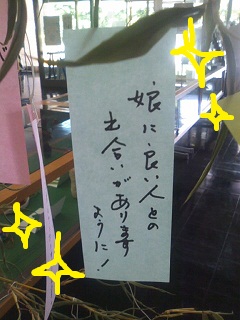 娘に良い人との
出合いがあります
ように!